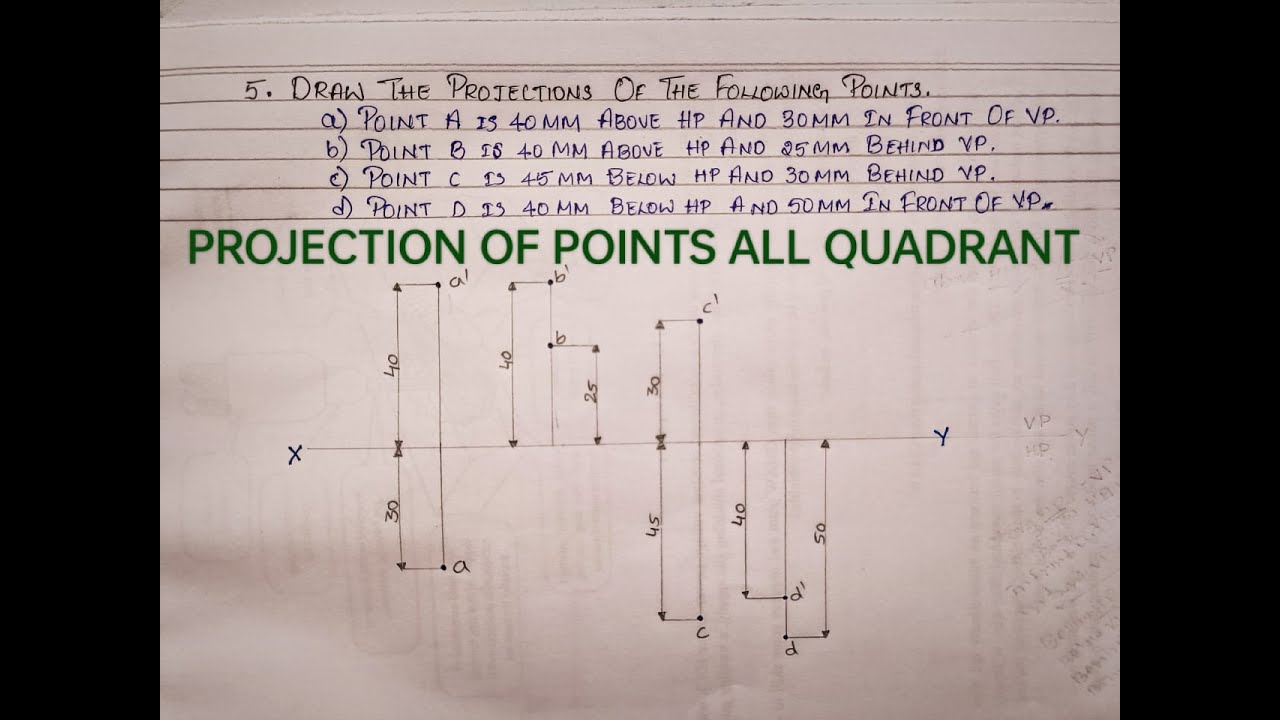 5. DRAW THE PROJECTIONS OF THE FOLLOWING POINTS.
a) POINT A IS 40 MM ABOVE HP AND 30MM IN FRONT OF VP.
b) POINT B IS 40 MM ABOVE HP AND 25 MM BEHIND VP.
c) POINT C IS 45 MM BELOW HP AND 30MM BEHIND VP.
d) POINT D IS 40 MM BELOW HP AND 50MM IN FRONT OF VP.
PROJECTION OF POINTS ALL QUADRANT
a' b'
c'
b
40 40 25 30
VP
X Y Y
HP
30 45 40 50
a
d'
c
d